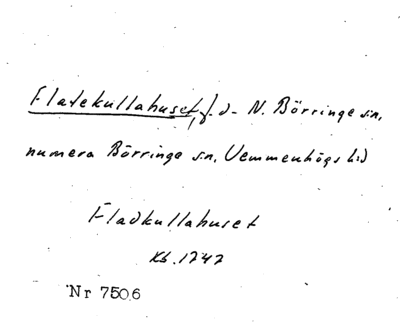 Flatekullahuset, f.d. N. Börringe sn,
numera Börringe sn, Vemmenhögs hd
Fladkullahuset
Kb. 1747
Nr 7506